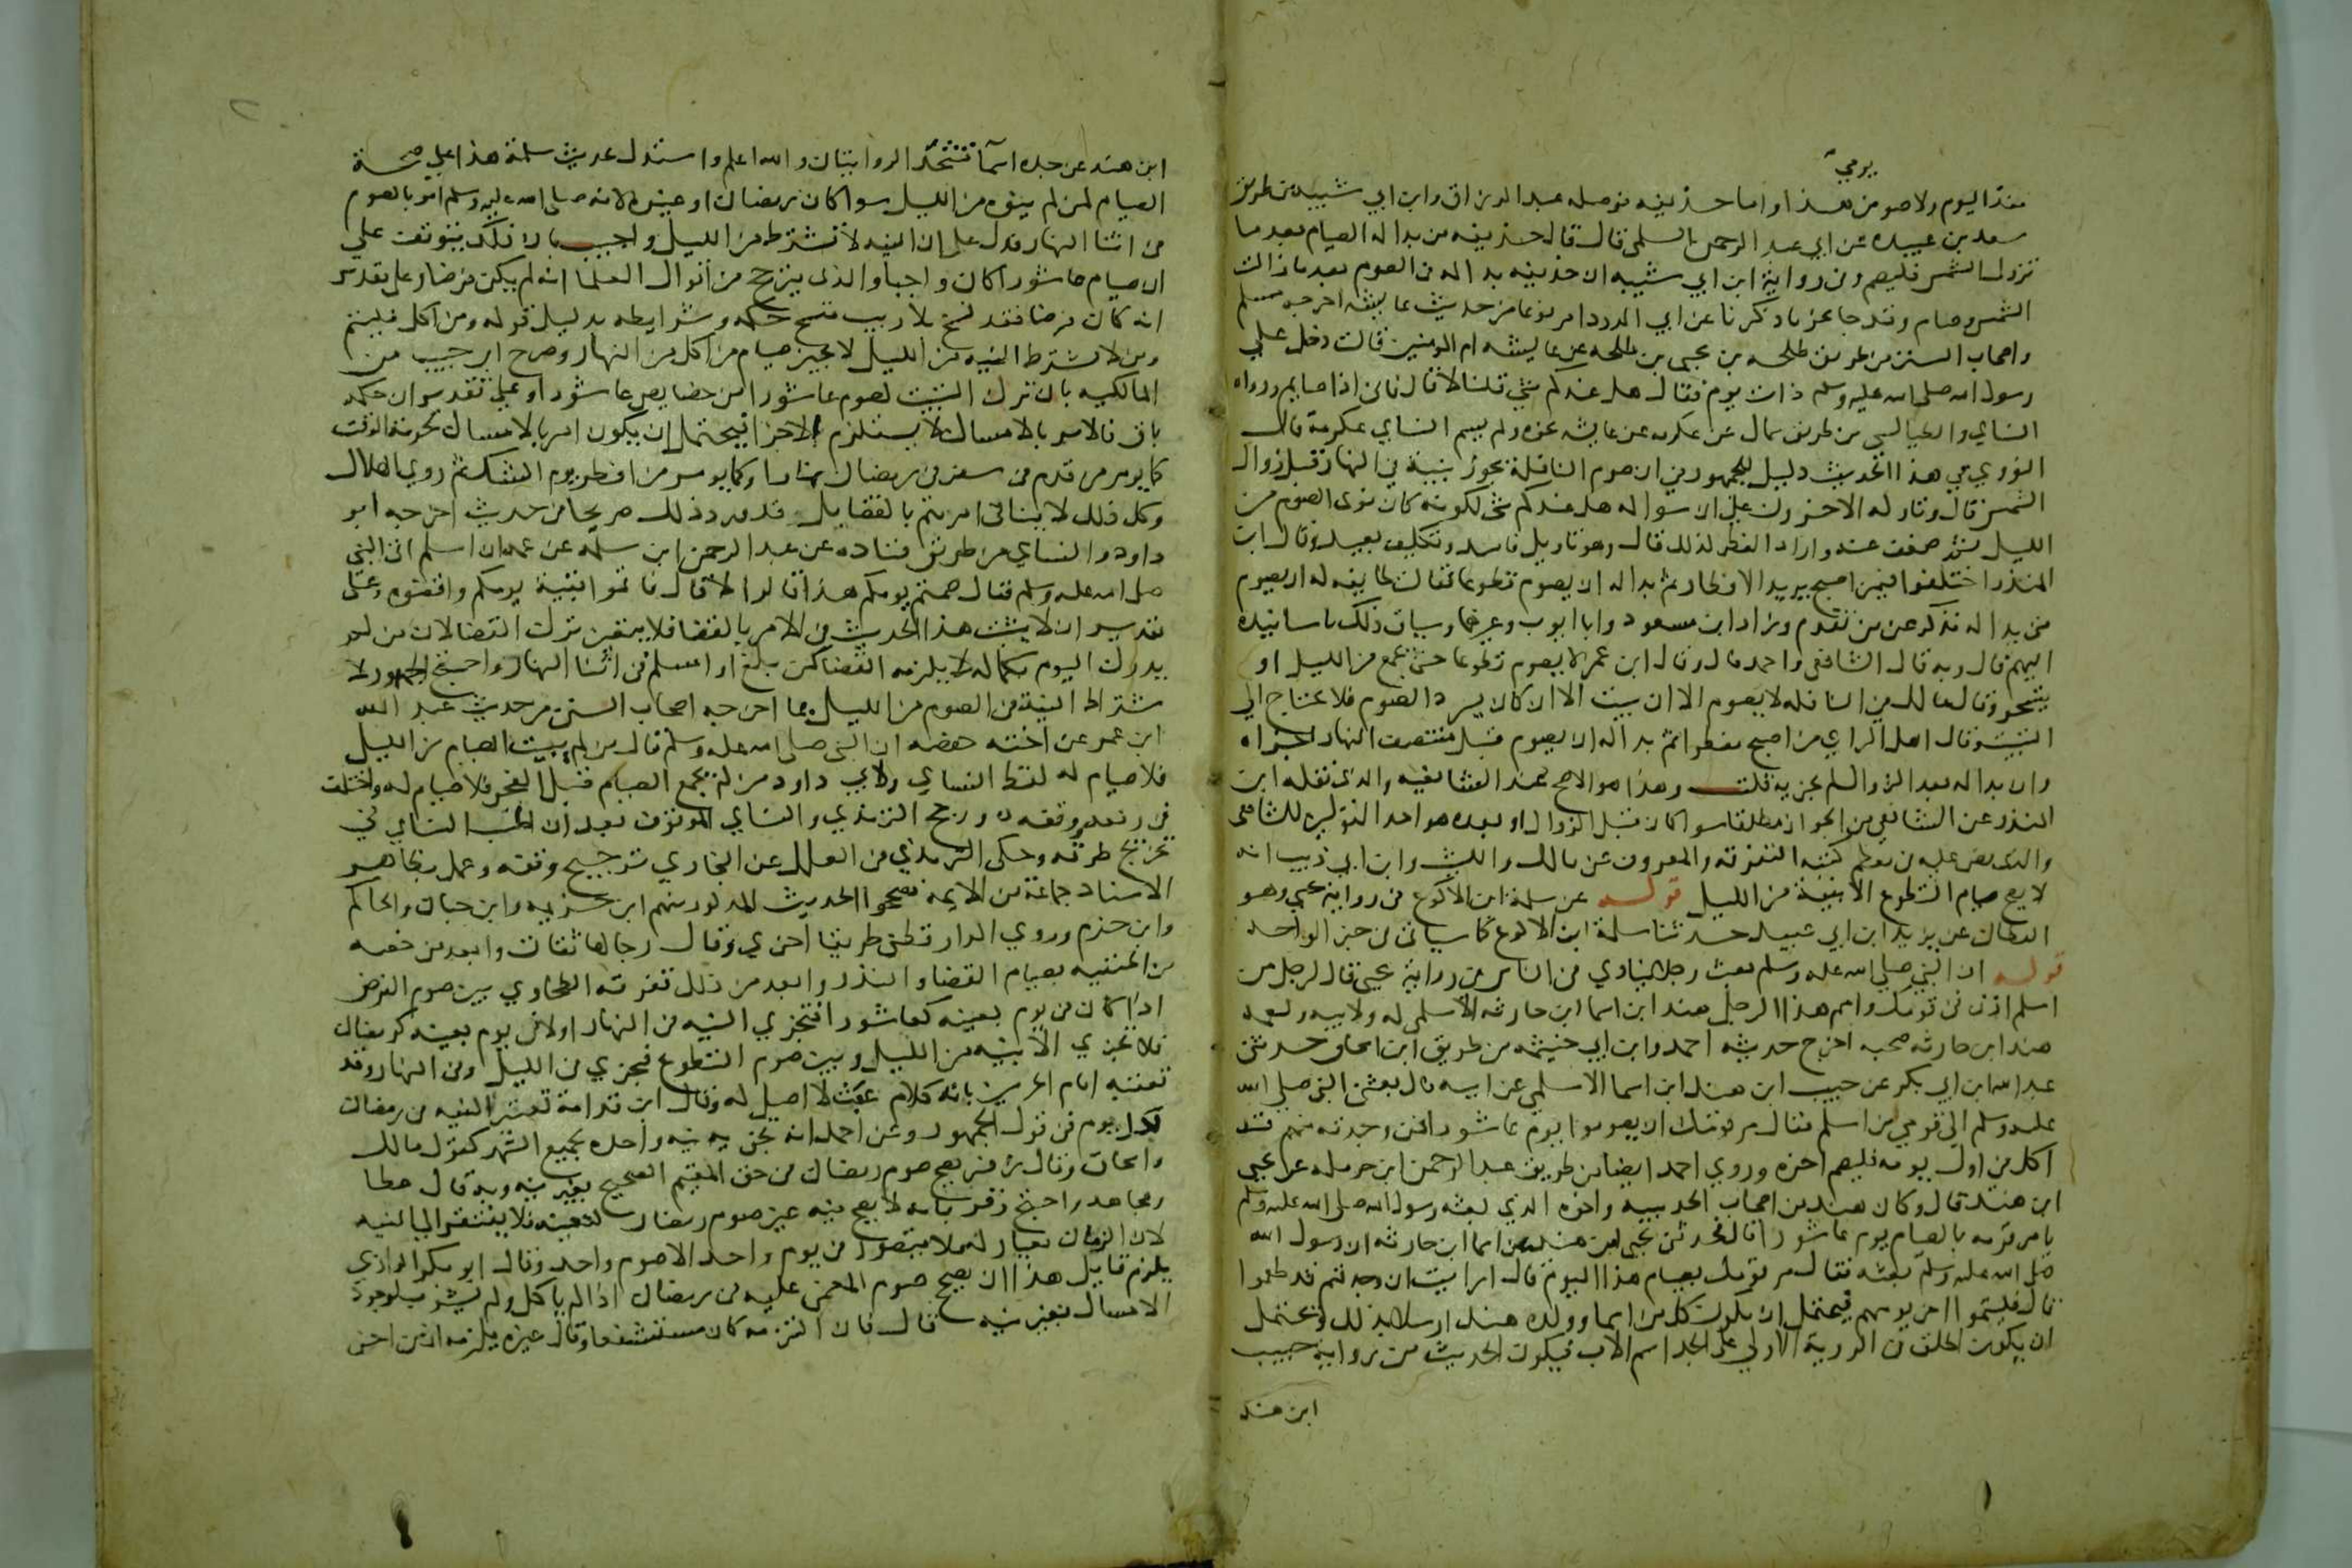 يومي
هذا اليوم ولاصومن هذا واما حذيفه فوصله عبد الرزاق وابن ابي شيبه من طريق
سعد بن عبيده عن ابي عبد الرحمن السلمي قال قال حذيفه من بدا له الصيام بعد ما
تزول الشمس فليصم وفي رواية ابن ابي شيبه ان حذيفه بدا له في الصوم بعد ما زالت
الشمس فصام وقد جا نحو ما ذكرنا عن ابي الدردا مرفوعا من حديث عايشه اخرجه مسلم
واصحاب السنن من طريق طلحه بن يحيى بن طلحه عن عايشه ام المومنين قالت دخل علي
رسول الله صلى الله عليه وسلم ذات يوم فقال هل عندكم شي قلنا لا قال فاني اذا صايم ورواه
النساي والطيالسي من طريق سماك عن عكرمه عن عايشه نحوه ولم يسم النساي عكرمة قال
النووي في هذا الحديث دليل للجمهور في ان صوم النافلة يجوز بنية في النهار قبل زوال
الشمس قال وتاوله الاخرون على ان سواله هل عندكم شي لكونه كان نوى الصوم من
الليل ثم ضعف عنه واراد الفطر لذلك قال وهو تاويل فاسد وتكليف بعيد وقال ابن
المنذر اختلفوا فيمن اصبح يريد الافطار ثم بدا له ان يصوم تطوعا فقالت طايفه له ان يصوم
متى بدا له فذكر عمن تقدم وزاد ابن مسعود وابا ايوب وغيرهما وسياق ذلك باسانيده
اليهم قال وبه قال الشافعي واحمد قال وقال ابن عمر لا يصوم تطوعا حتى يجمع من الليل او
يتسحر وقال مالك في النافله لا يصوم الا ان يبيت الا ان كان يسرد الصوم فلا يحتاج الي
التبييت وقال اهل الراي من اصبح مفطرا ثم بدا له ان يصوم قبل منتصف النهار اجزاه
وان بدا له بعد الزوال لم يجزيه قلت وهذا هو الاصح عند الشافعيه والذي نقله ابن
المنذر عن الشافعي من الجواز مطلقا سوا كان قبل الزوال او بعده هو احد القولين للشافعي
والذي نص عليه في معظم كتبه التفرقه والمعروف عن مالك والليث وابن ابي ذيب انه
لا يصح صيام التطوع الا بنية من الليل قوله عن سلمة ابن الاكوع في رواية يحيى وهو
القطان عن يزيد ابن ابي عبيد حدثنا سلمة ابن الاكوع كما سياتي في خبر الواحد
قوله ان النبي صلى الله عليه وسلم بعث رجلا ينادي في الناس في رواية يحيى قال لرجل من
اسلم اذن في قومك واسم هذا الرجل هند ابن اسما ابن حارثه الاسلمي له ولابيه ولعمه
هند ابن حارثه صحبه اخرج حديثه احمد وابن ابي خيثمه من طريق ابن اسحاق حدثني
عبد الله ابن ابي بكر عن حبيب ابن هند ابن اسما الاسلمي عن ابيه قال بعثني النبي صلى الله
عليه وسلم الي قومي من اسلم فقال مر قومك ان يصوموا يوم عاشورا فمن وجدته منهم قد
اكل من اول يومه فليصم اخره وروي احمد ايضا من طريق عبد الرحمن ابن حرمله عن يحيى
ابن هند قال وكان هند من اصحاب الحديبيه واخوه الذي بعثه رسول الله صلى الله عليه وسلم
يامر قومه بالصيام يوم عاشورا قال فحدثني يحيى ابن هند عن اسما ابن حارثه ان رسول الله
صلى الله عليه وسلم بعثه فقال مر قومك بصيام هذا اليوم قال ارايت ان وجدتهم قد طعموا
قال فليتموا اخر يومهم فيحتمل ان يكون كل من اسما وولده هند ارسلا بذلك ويحتمل
ان يكون اطلق في الرواية الاولي على الجد اسم الاب فيكون الحديث من رواية حبيب
ابن هند
ابن هند عن جده اسما فتتحد الروايتان والله اعلم واستدل بحديث سلمة هذا على صحة
الصيام لمن لم ينوه من الليل سوا كان رمضان او غيره لانه صلى الله عليه وسلم امر بالصوم
في اثنا النهار فدل على ان النيه لا تشترط من الليل واجيب بان ذلك يتوقف على
ان صيام عاشورا كان واجبا والذي يترجح من اقوال العلما انه لم يكن فرضا وعلى تقدير
انه كان فرضا فقد نسخ بلا ريب فنسخ حكمه وشرايطه بدليل قوله ومن اكل فليتم
ومن لا يشترط النيه من الليل لا يجيز صيام من اكل من النهار وصرح ابن حبيب من
المالكيه بان ترك التبييت لصوم عاشورا من خصايص عاشورا وعلى تقدير ان حكمه
باق فالامر بالامساك لا يستلزم الاجزا فيحتمل ان يكون امر بالامساك لحرمة الوقت
كما يومر من قدم من سفر في رمضان نهارا وكما يومر من افطر يوم الشك ثم روي الهلال
وكل ذلك لا ينافي امرهم بالقضا بل قد ورد ذلك صريحا في حديث اخرجه ابو
داود والنساي من طريق قتاده عن عبد الرحمن ابن سلمه عن عمه ان اسلم اتى النبي
صلى الله عليه وسلم فقال صمتم يومكم هذا قالوا لا قال فاتموا بقية يومكم واقضوه وعلى
تقدير ان لا يثبت هذا الحديث في الامر بالقضا فلا يتعين ترك القضا لان من لم
يدرك اليوم بكماله لا يلزمه القضا كمن بلغ او اسلم في اثنا النهار واحتج الجمهور لا
شتراط النية في الصوم من الليل بما اخرجه اصحاب السنن من حديث عبد الله
ابن عمر عن اخته حفصه ان النبي صلى الله عليه وسلم قال من لم يبيت الصيام من الليل
فلا صيام له لفظ النساي ولابي داود من لم يجمع الصيام قبل الفجر فلا صيام له واختلف
في رفعه ووقفه ورجح الترمذي والنساي الموقوف بعد ان اطنب النساي في
تخريج طرقه وحكى الترمذي في العلل عن البخاري ترجيح وقفه وعمل بظاهر
الاسناد جماعة من الايمه فصححوا الحديث المذكور منهم ابن خزيمه وابن حبان والحاكم
وابن حزم وروي الدارقطني طريقا اخري وقال رجالها ثقات وابعد من خصه
من الحنفيه بصيام القضا والنذر وابعد من ذلك تفرقة الطحاوي بين صوم الفرض
اذا كان في يوم بعينه كعاشورا فتجزي النيه في النهار او لا في يوم بعينه كرمضان
فلا يجزي الا بنيه من الليل وبين صوم التطوع فيجزي في الليل وفي النهار وقد
تعقبه امام الحرمين بانه كلام غث لا اصل له وقال ابن قدامة تعتبر النيه في رمضان
لكل يوم في قول الجمهور وعن احمد انه يجزيه نيه واحده لجميع الشهر كقول مالك
واسحاق وقال زفر يصح صوم رمضان في حق المقيم الصحيح بغير نيه وبه قال عطا
ومجاهد واحتج زفر بانه لا يصح فيه غير صوم رمضان لتعينه فلا يفتقر الي النيه
لان الزمان معيار له فلا يتصور في يوم واحد الا صوم واحد وقال ابو بكر الرازي
يلزم قايل هذا ان يصح صوم المغمى عليه في رمضان اذا لم ياكل ولم يشرب لوجود
الامساك بغير نيه قال فان التزمه كان مستشنعا وقال غيره يلزمه ان من اخر